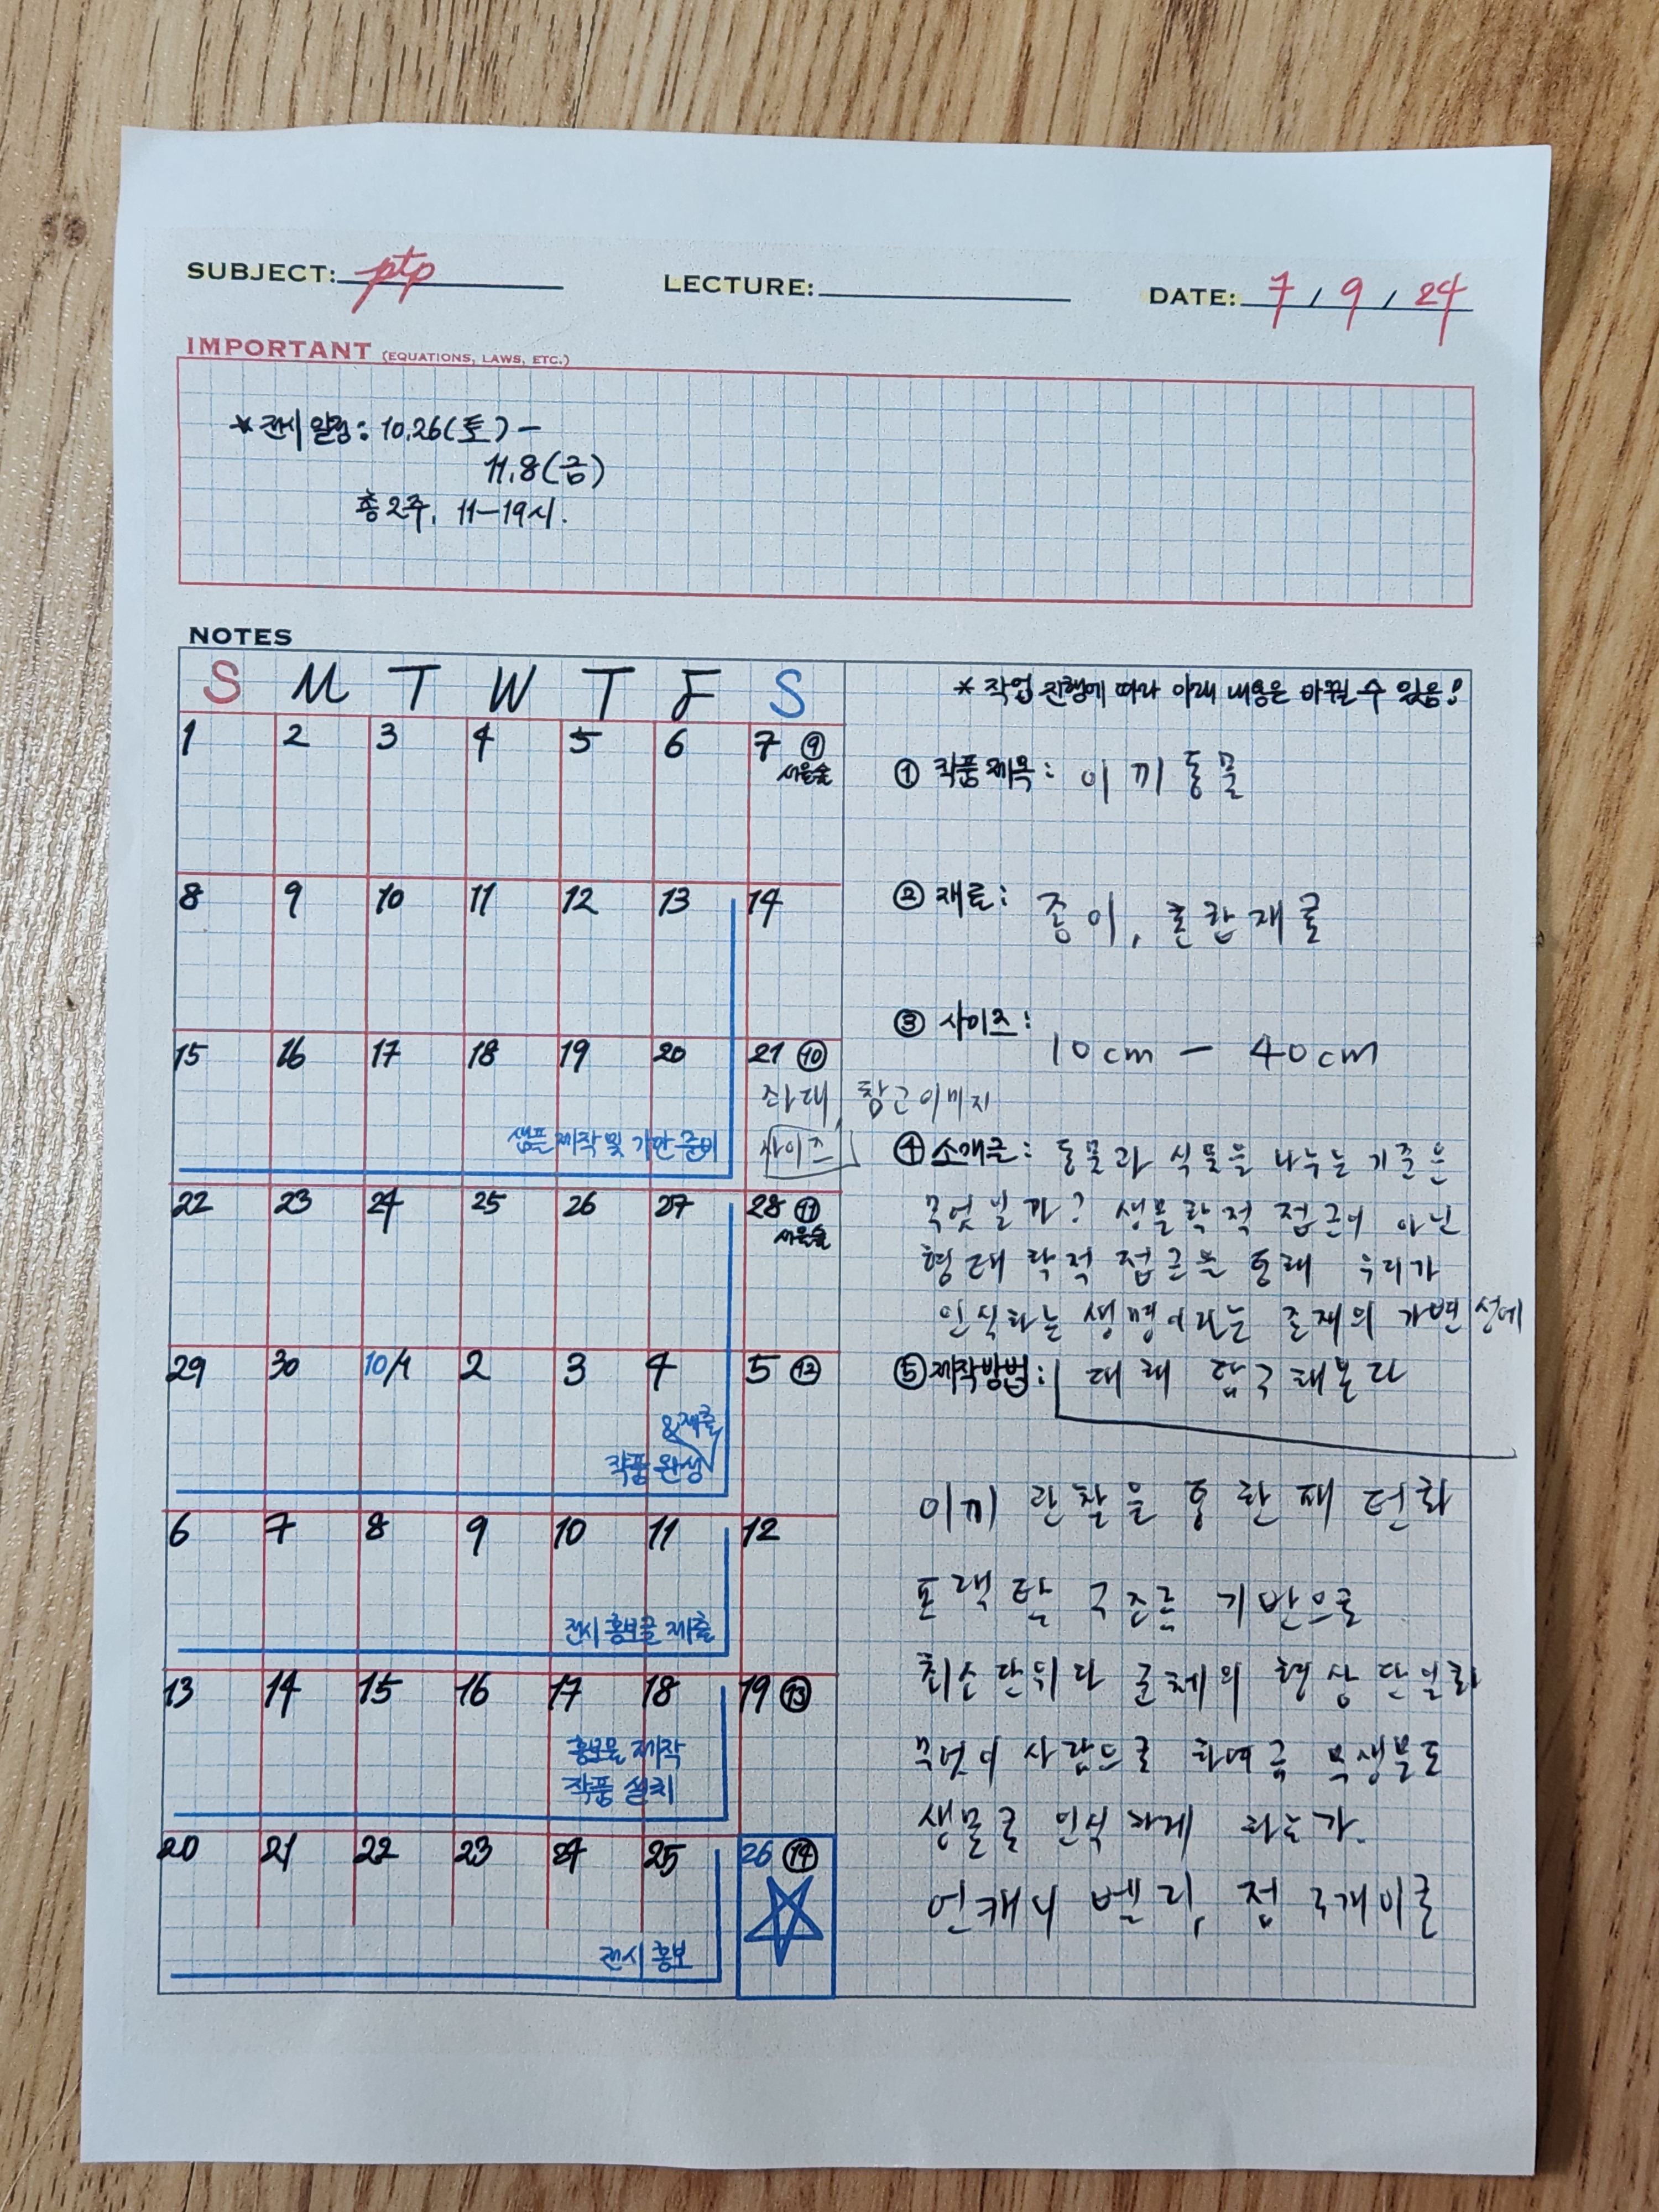 SUBJECT: ptp
LECTURE:
DATE: 7 / 9 / 24
IMPORTANT (EQUATIONS, LAWS, ETC.)
* 전시 일정: 10.26(토) -
11.8(금)
총 2주. 11-19시.
NOTES
S M T W T F S
1 2 3 4 5 6 7 ⑨
서울숲
8 9 10 11 12 13 14
15 16 17 18 19 20 21 ⑩
좌대, 참고이미지
샘플 제작 및 가안 준비
사이즈
22 23 24 25 26 27 28 ⑪
서울숲
29 30 10/1 2 3 4 5 ⑫
&제출
작품 완성
6 7 8 9 10 11 12
전시 홍보글 제출
13 14 15 16 17 18 19 ⑬
홍보물 제작
작품 설치
20 21 22 23 24 25 26 ⑭
전시 홍보
* 작업 진행에 따라 아래 내용은 바뀔 수 있음!
① 작품 제목: 이끼동물
② 재료: 종이, 혼합재료
③ 사이즈:
10cm - 40cm
④ 소개글: 동물과 식물을 나누는 기준은
무엇일까? 생물학적 접근이 아닌
형태학적 접근을 통해 우리가
인식하는 생명이라는 존재의 가변성에
⑤ 제작방법: 대해 탐구해본다
이끼 관찰을 통한 패턴화
프랙탈 구조를 기반으로
최소단위와 군체의 형상 단일화
무엇이 사람으로 하여금 무생물도
생물로 인식하게 하는가.
언캐니 벨리, 점 3개 이론